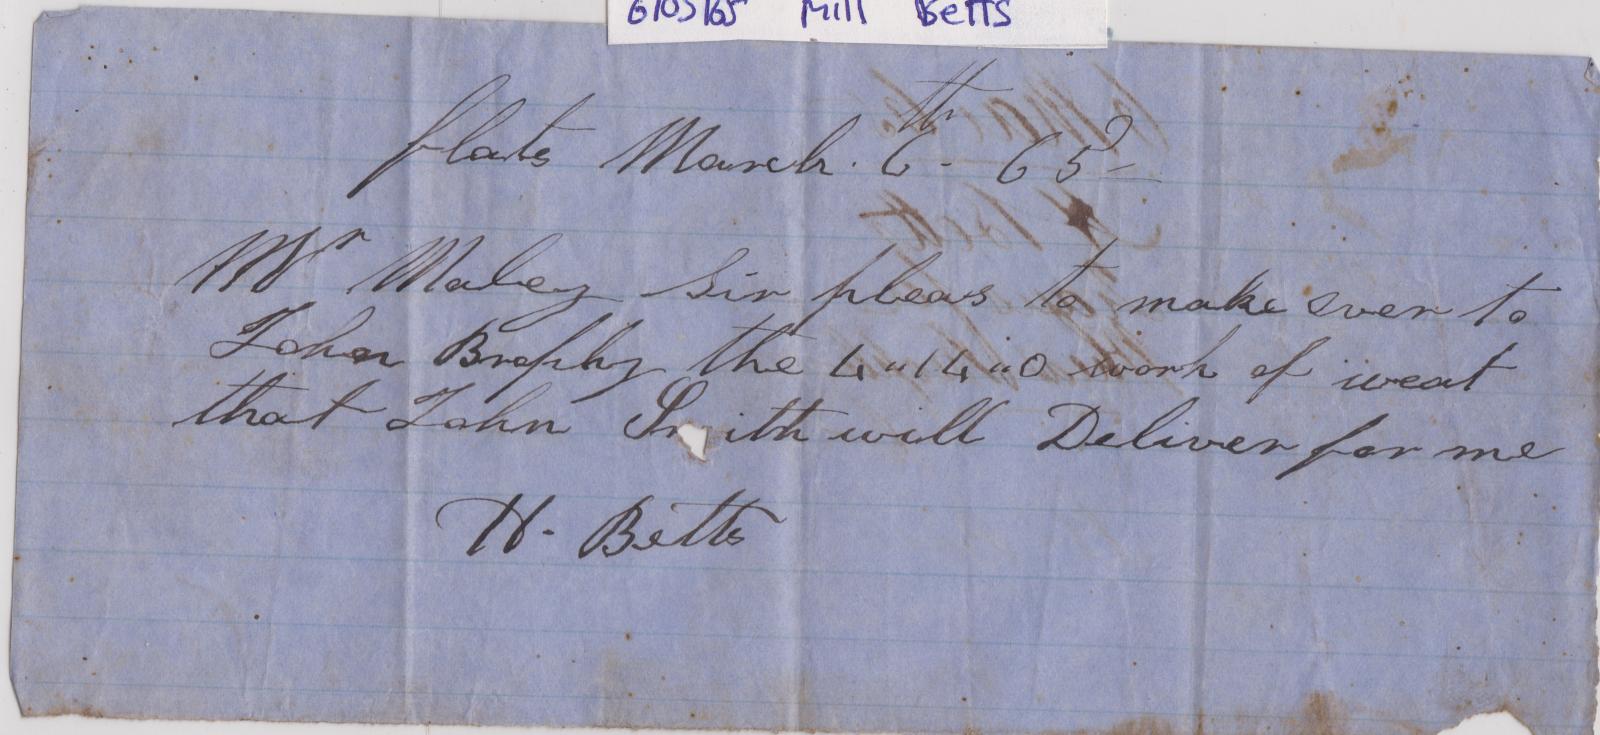 6/03/65 Mill Betts
flats March. 6th - 65
Mr Maley Sir pleas to make over to
John Brophy the 4"14"0 worh of weat
that John Smith will Deliver for me
H. Betts